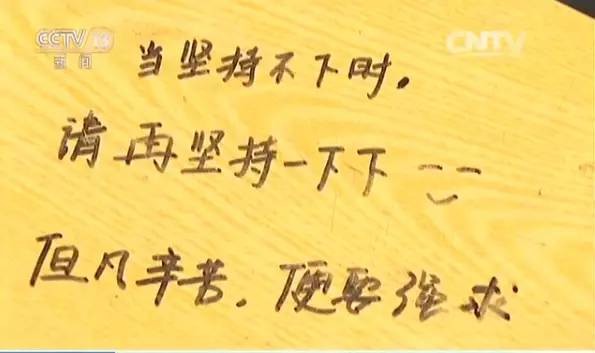 CCTV 13 CNTV
新闻
当坚持不下时.
请再坚持一下下
但凡辛苦.便要强求